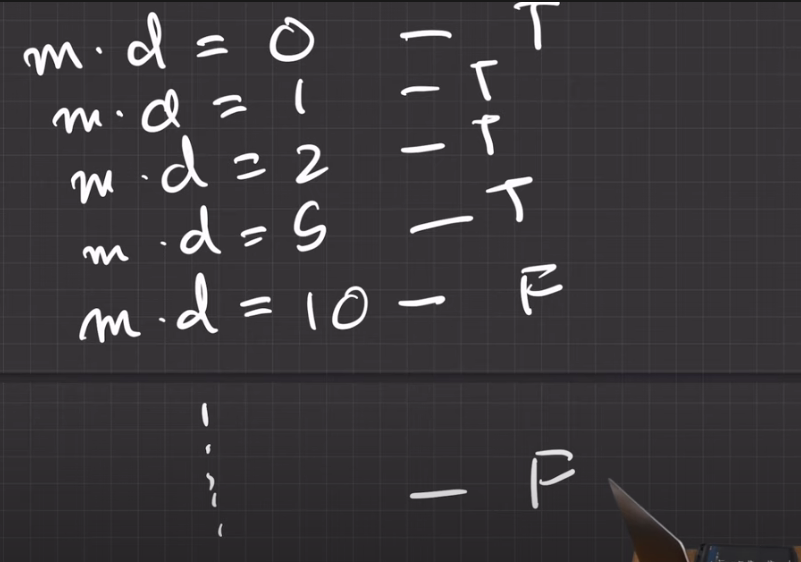 m.d = 0 — T
m.d = 1 — T
m.d = 2 — T
m.d = 5 — T
m.d = 10 — F
— F